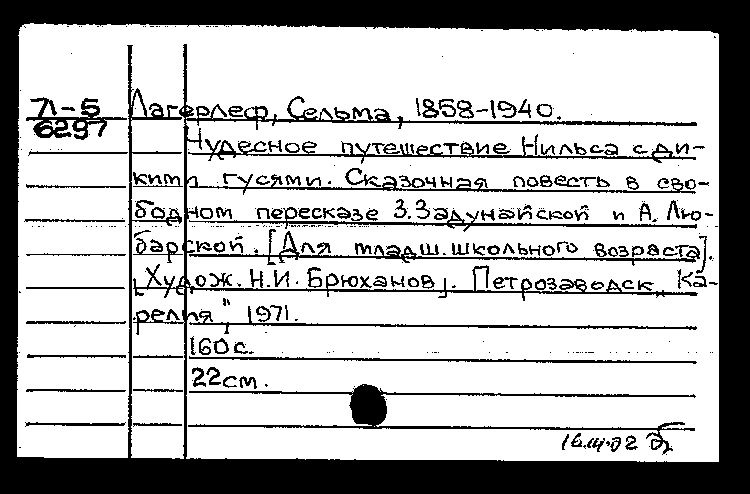 71-5 Лагерлеф, Сельма, 1858-1940.
6297
Чудесное путешествие Нильса с ди-
кими гусями. Сказочная повесть в сво-
бодном пересказе З.Задунайской и А. Лю-
барской. [Для младш. школьного возраста].
[Худож. Н.И. Брюханов]. Петрозаводск, "Ка-
релия", 1971.
160 с.
22 см.
16.III.02